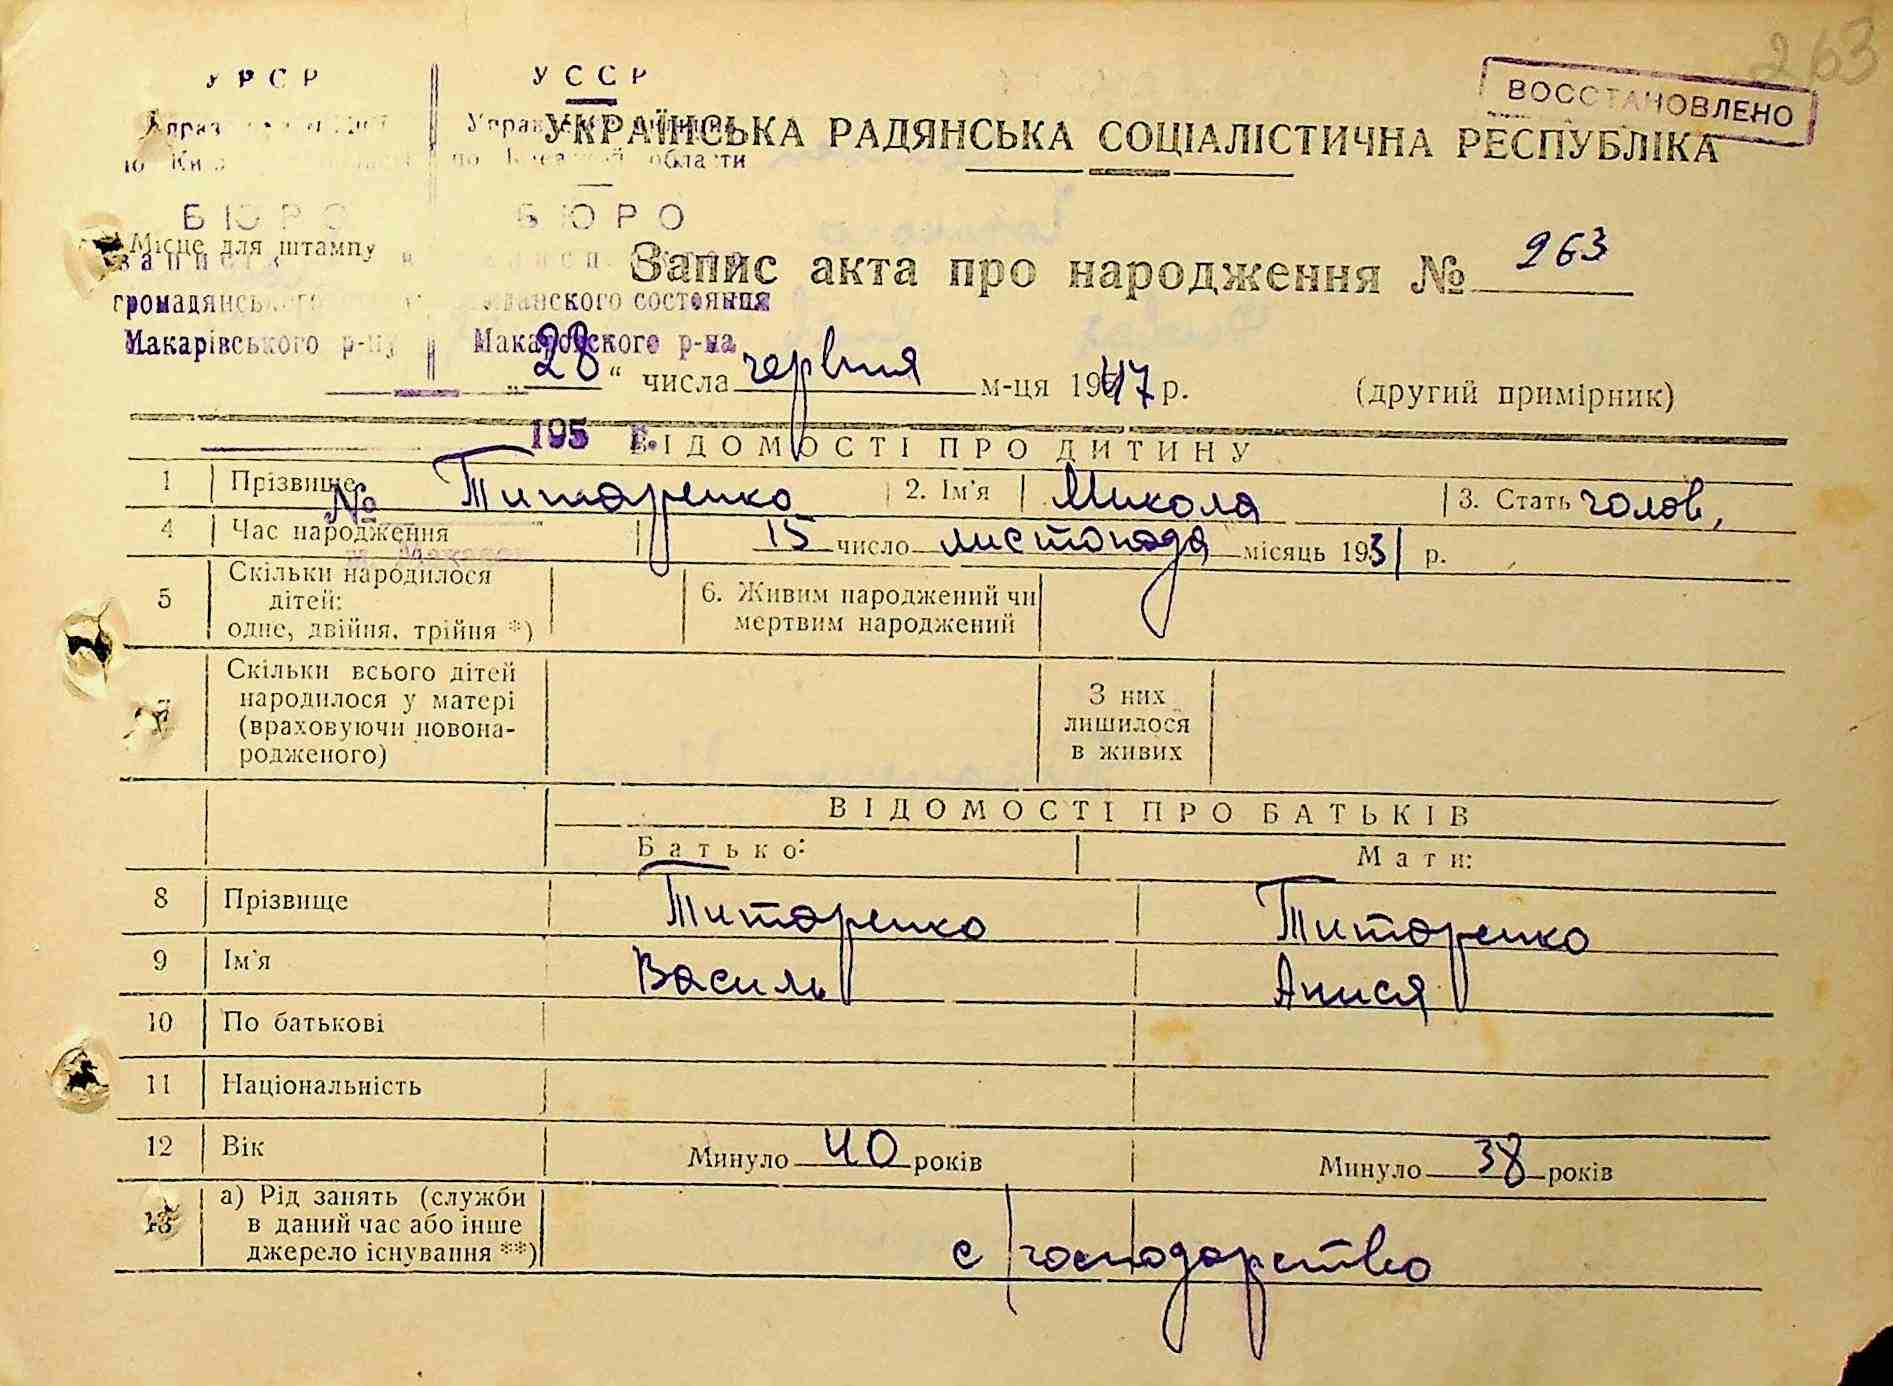 263
ВОССТАНОВЛЕНО
УРСР
УССР
УКРАЇНСЬКА РАДЯНСЬКА СОЦІАЛІСТИЧНА РЕСПУБЛІКА
по области
БЮРО
БЮРО
Місце для штампу
Запис акта про народження № 263
состояния
Макарівського р-ну
Макаровского р-на
„28“ числа червня м-ця 1947 р.
(другий примірник)
195 г.
ВІДОМОСТІ ПРО ДИТИНУ
1 Прізвище Титаренко 2. Ім'я Микола 3. Стать чолов.
№
4 Час народження 15 число листопада місяць 1931 р.
5 Скільки народилося дітей: одне, двійня, трійня *)
6. Живим народжений чи мертвим народжений
7 Скільки всього дітей народилося у матері (враховуючи новонародженого)
З них лишилося в живих
ВІДОМОСТІ ПРО БАТЬКІВ
Батько: Мати:
8 Прізвище Титаренко Титаренко
9 Ім'я Василь Анися
10 По батькові
11 Національність
12 Вік Минуло 40 років Минуло 38 років
13 а) Рід занять (служби в даний час або інше джерело існування **)
с/господарство